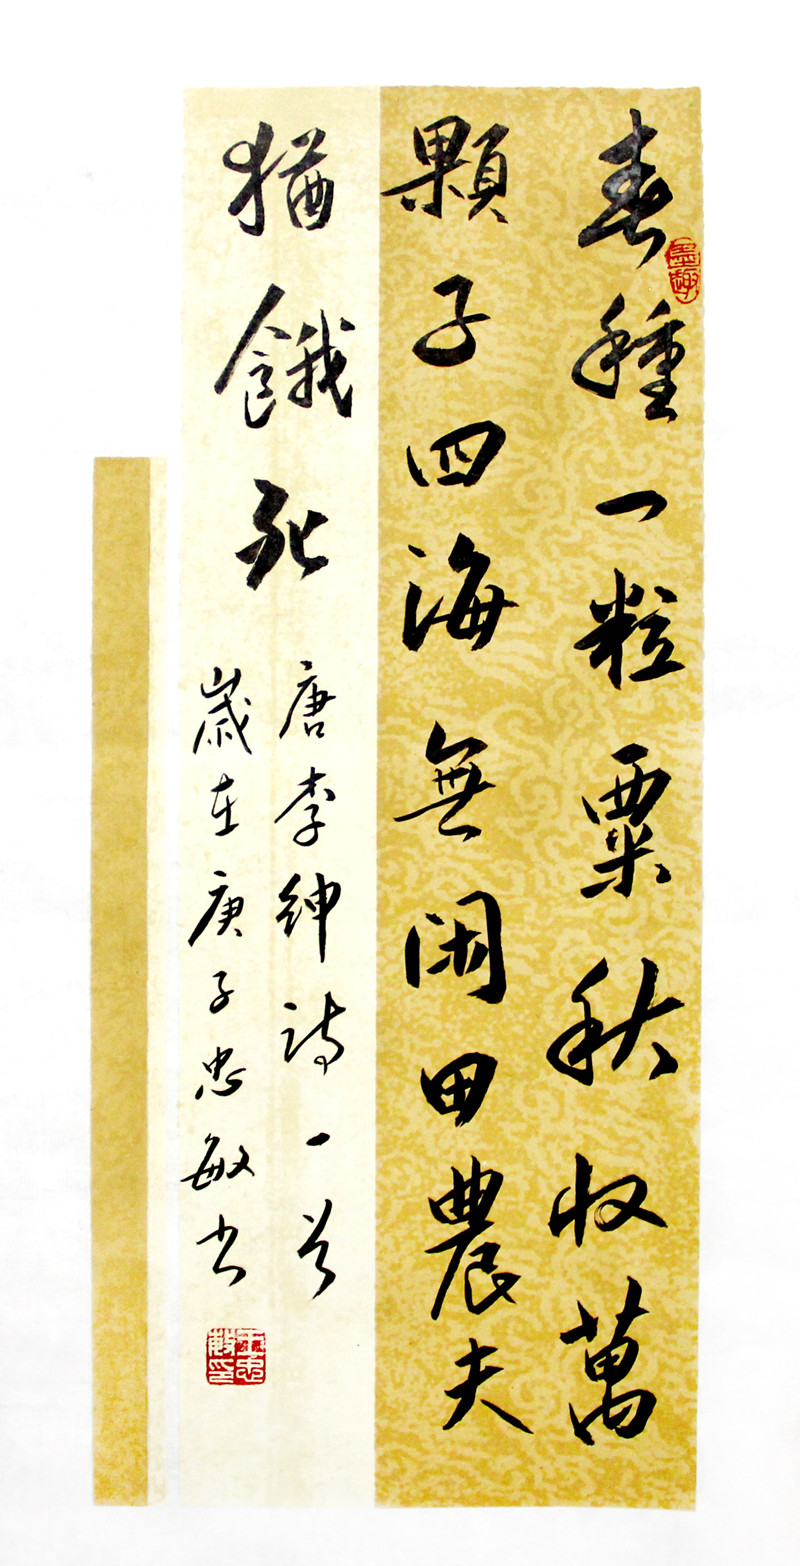 春種一粒粟秋收萬
顆子四海無閑田農夫
猶餓死
唐李紳詩一首
歲在庚子忠敏书
墨趣
王忠敏印